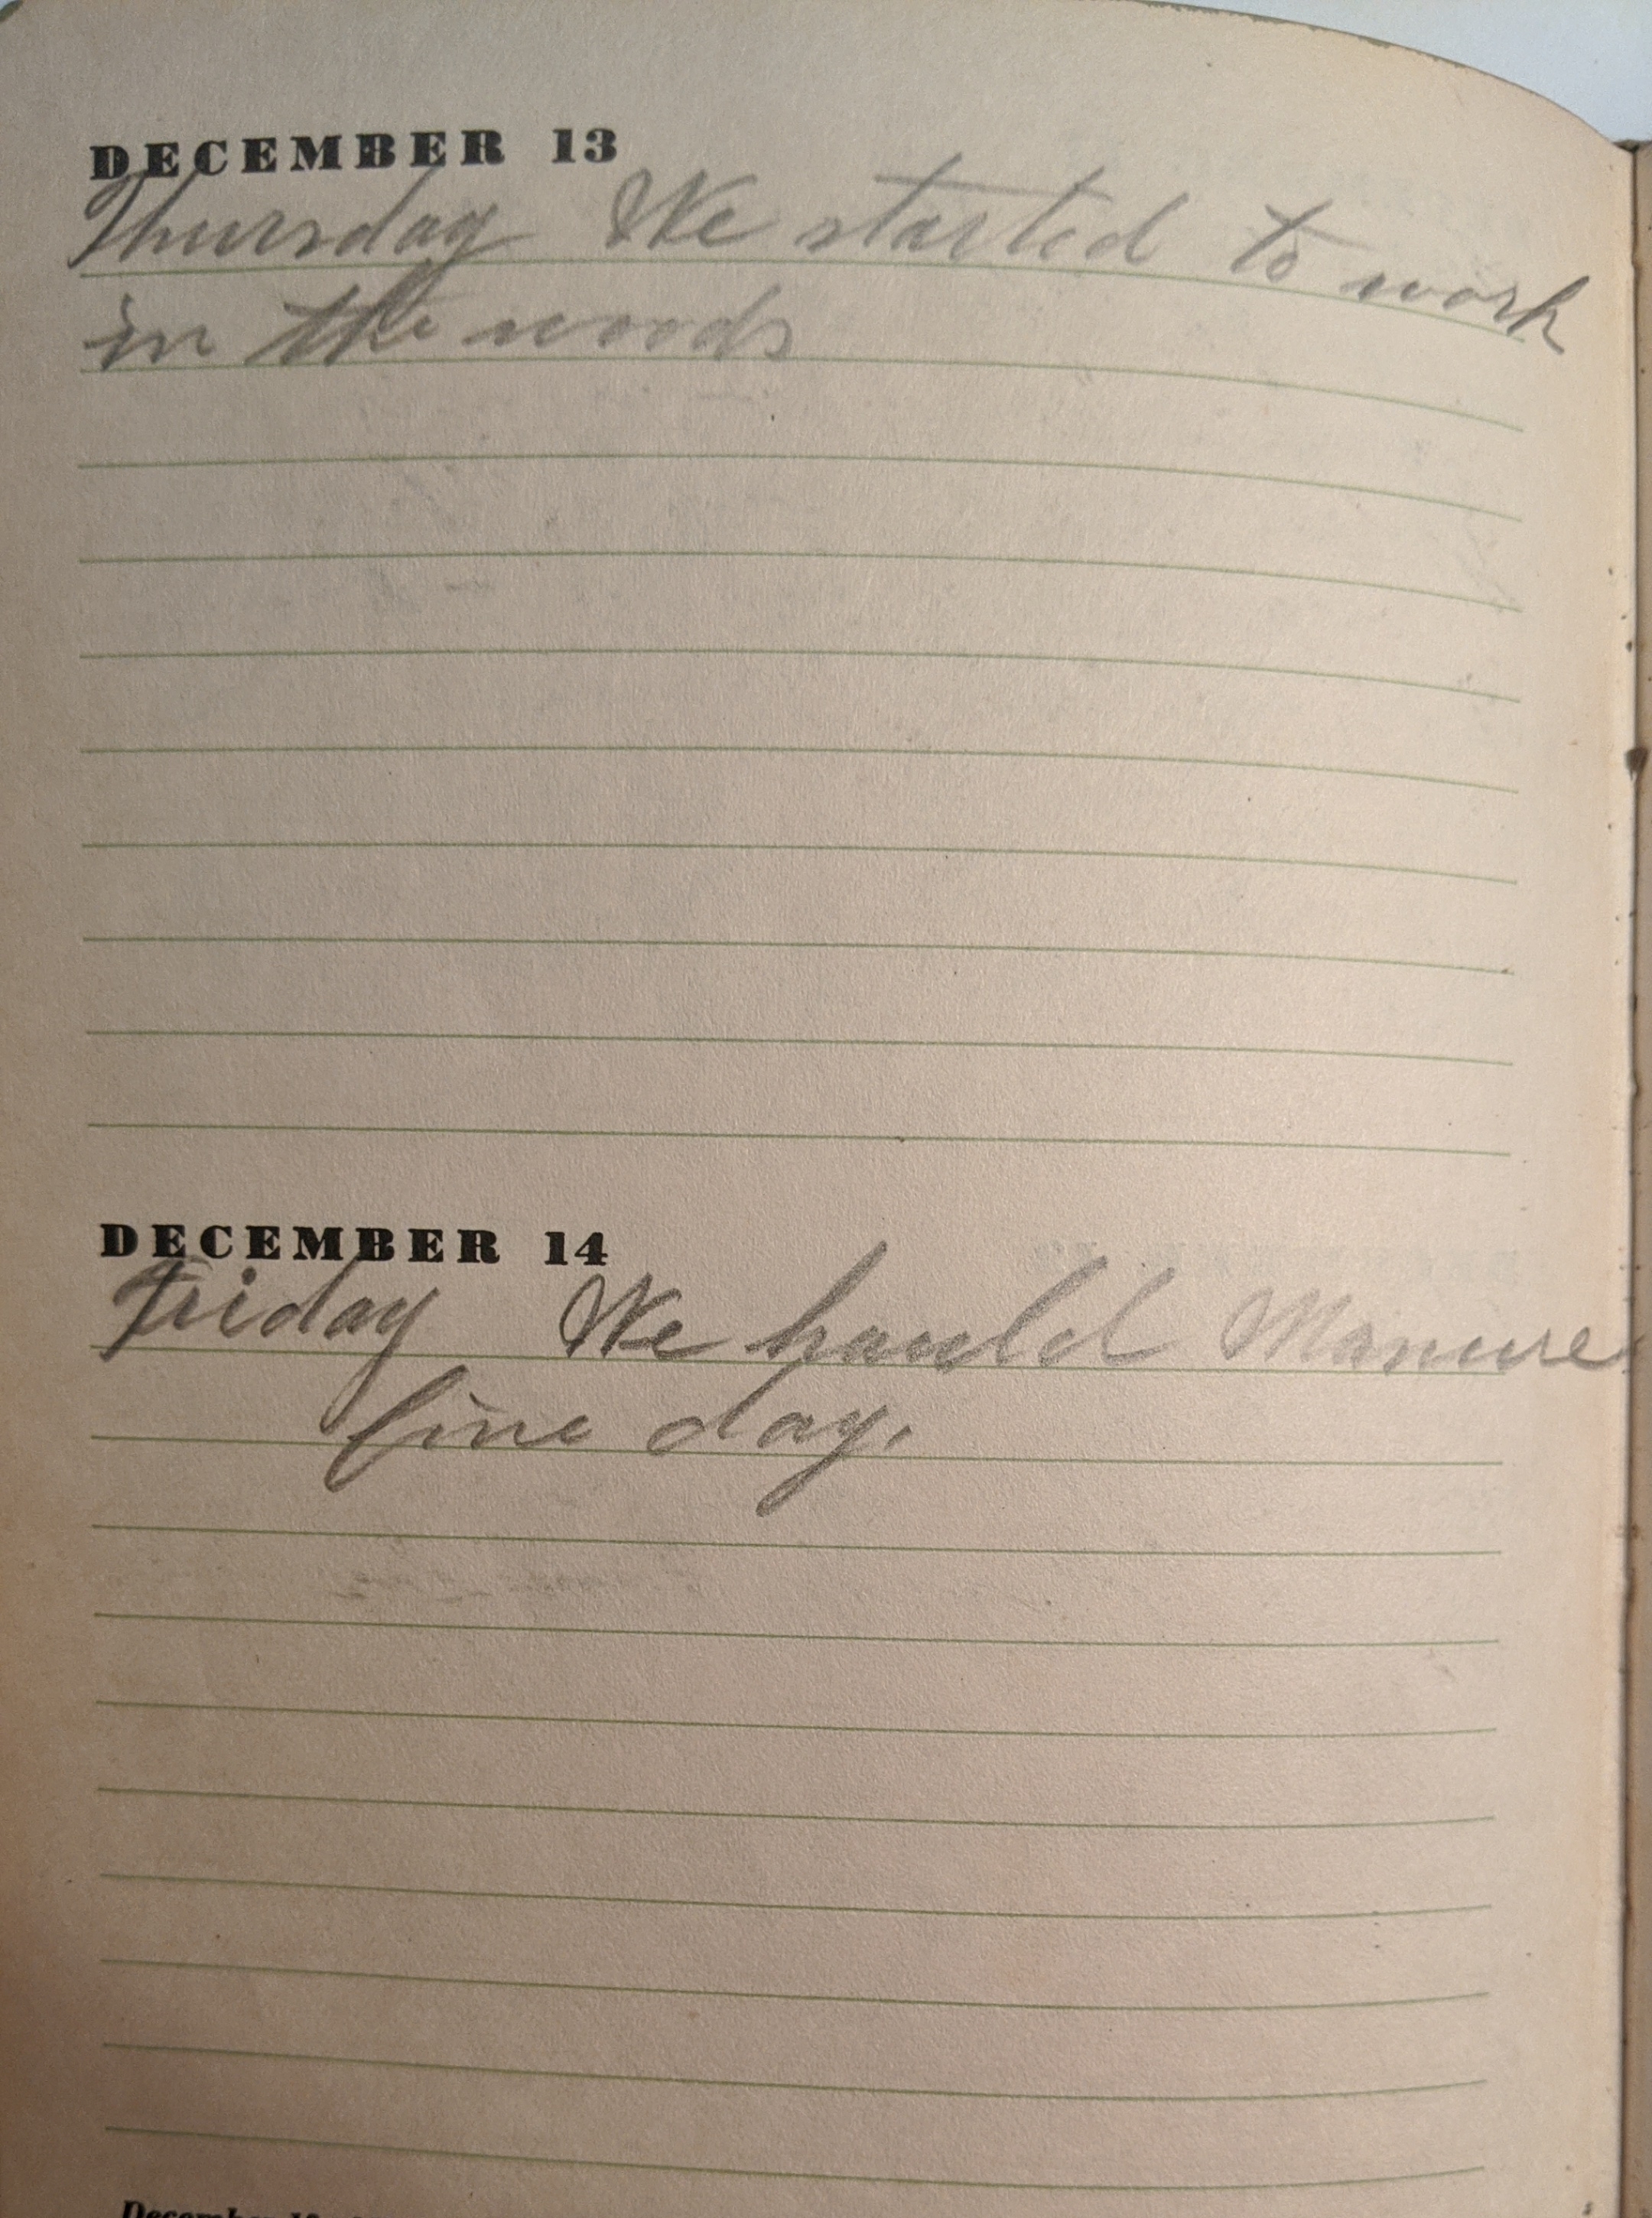 DECEMBER 13
Thursday We started to work
in the woods
DECEMBER 14
Friday We hauld Manure
fine day.